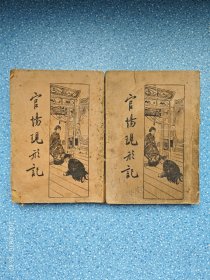 官場現形記
官場現形記